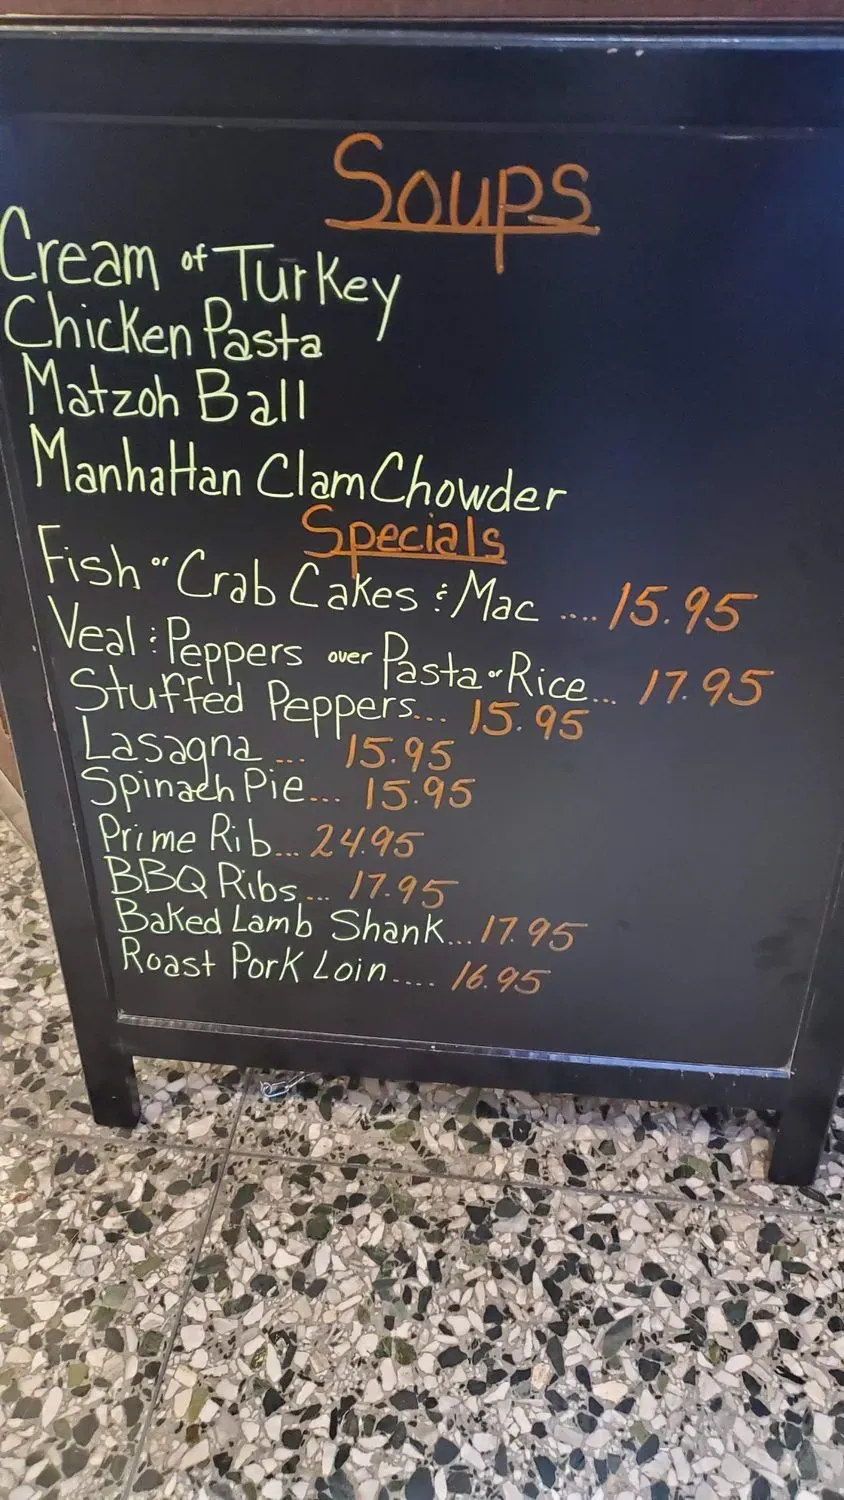 Soups
Cream of Turkey
Chicken Pasta
Matzoh Ball
Manhattan Clam Chowder
Specials
Fish or Crab Cakes & Mac .... 15.95
Veal & Peppers over Pasta or Rice... 17.95
Stuffed Peppers... 15.95
Lasagna ... 15.95
Spinach Pie... 15.95
Prime Rib... 24.95
BBQ Ribs... 17.95
Baked Lamb Shank... 17.95
Roast Pork Loin.... 16.95